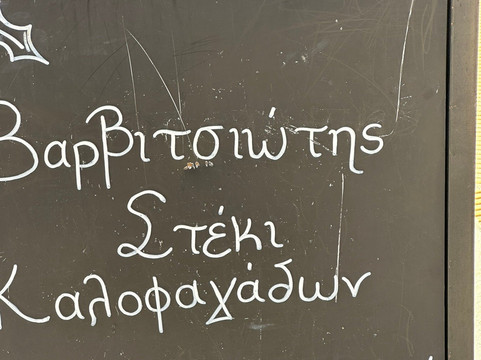 Βαρβιτσιώτης
Στέκι
Καλοφαγάδων